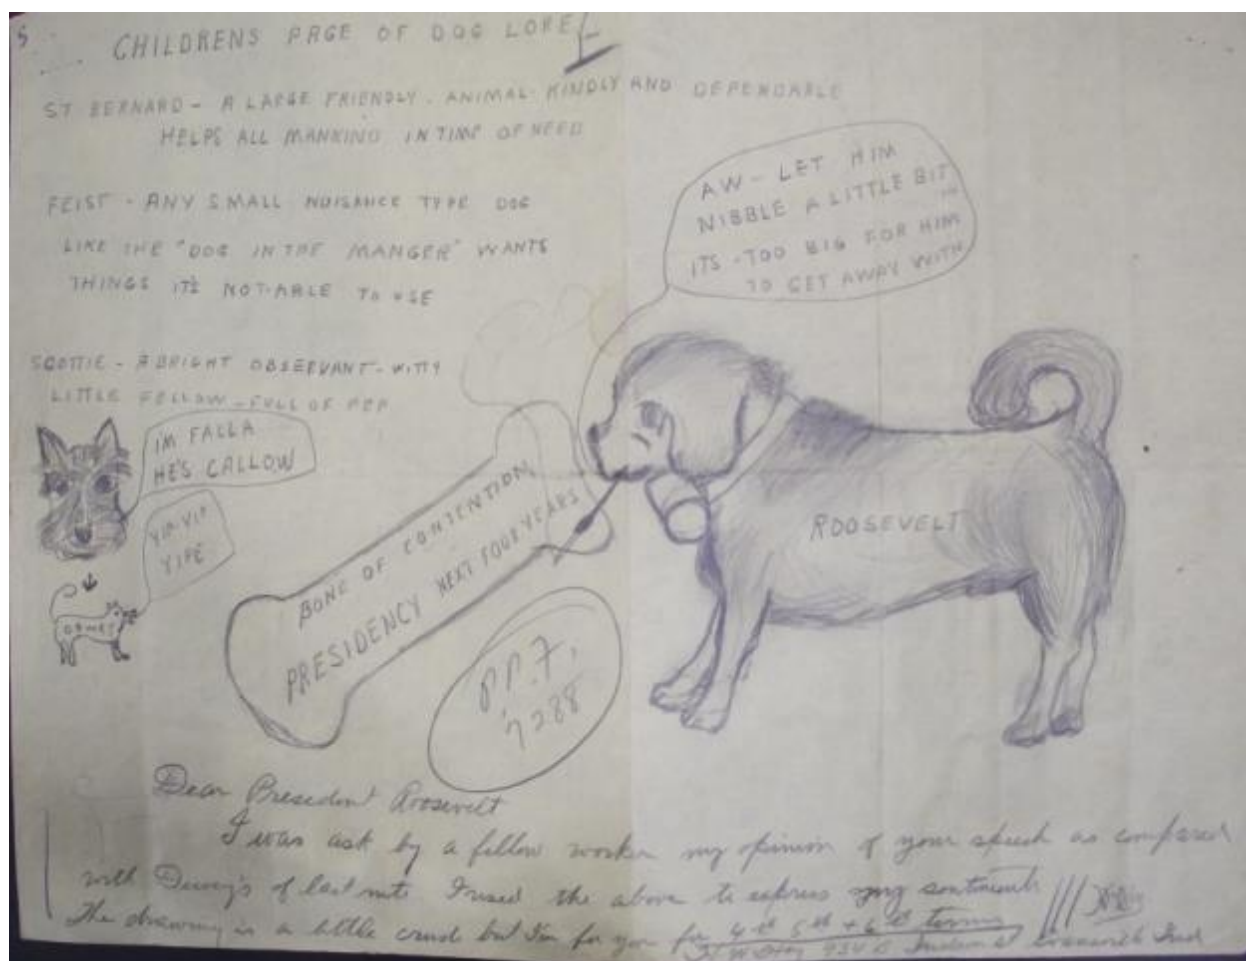 5
CHILDRENS PAGE OF DOG LORE
ST BERNARD - A LARGE FRIENDLY - ANIMAL - KINDLY AND DEPENDABLE
HELPS ALL MANKIND IN TIME OF NEED
FEIST - ANY SMALL NUISANCE TYPE DOG
LIKE THE "DOG IN THE MANGER" WANTS
THINGS IT'S NOT ABLE TO USE
SCOTTIE - A BRIGHT OBSERVANT - WITTY
LITTLE FELLOW - FULL OF PEP
IM FALLA
HE'S CALLOW
YIP-YIP
YIPE
DEWEY
AW - LET HIM
NIBBLE A LITTLE BIT
ITS - TOO BIG FOR HIM
TO GET AWAY WITH
ROOSEVELT
BONE OF CONTENTION
PRESIDENCY NEXT FOUR YEARS
P.P.F.
7288
Dear President Roosevelt
I was ask by a fellow worker my opinion of your speech as compared
with Dewey's of last nite I used the above to express my sentiments
The drawing is a little crud but I'm for you for 4th 5th + 6th terms